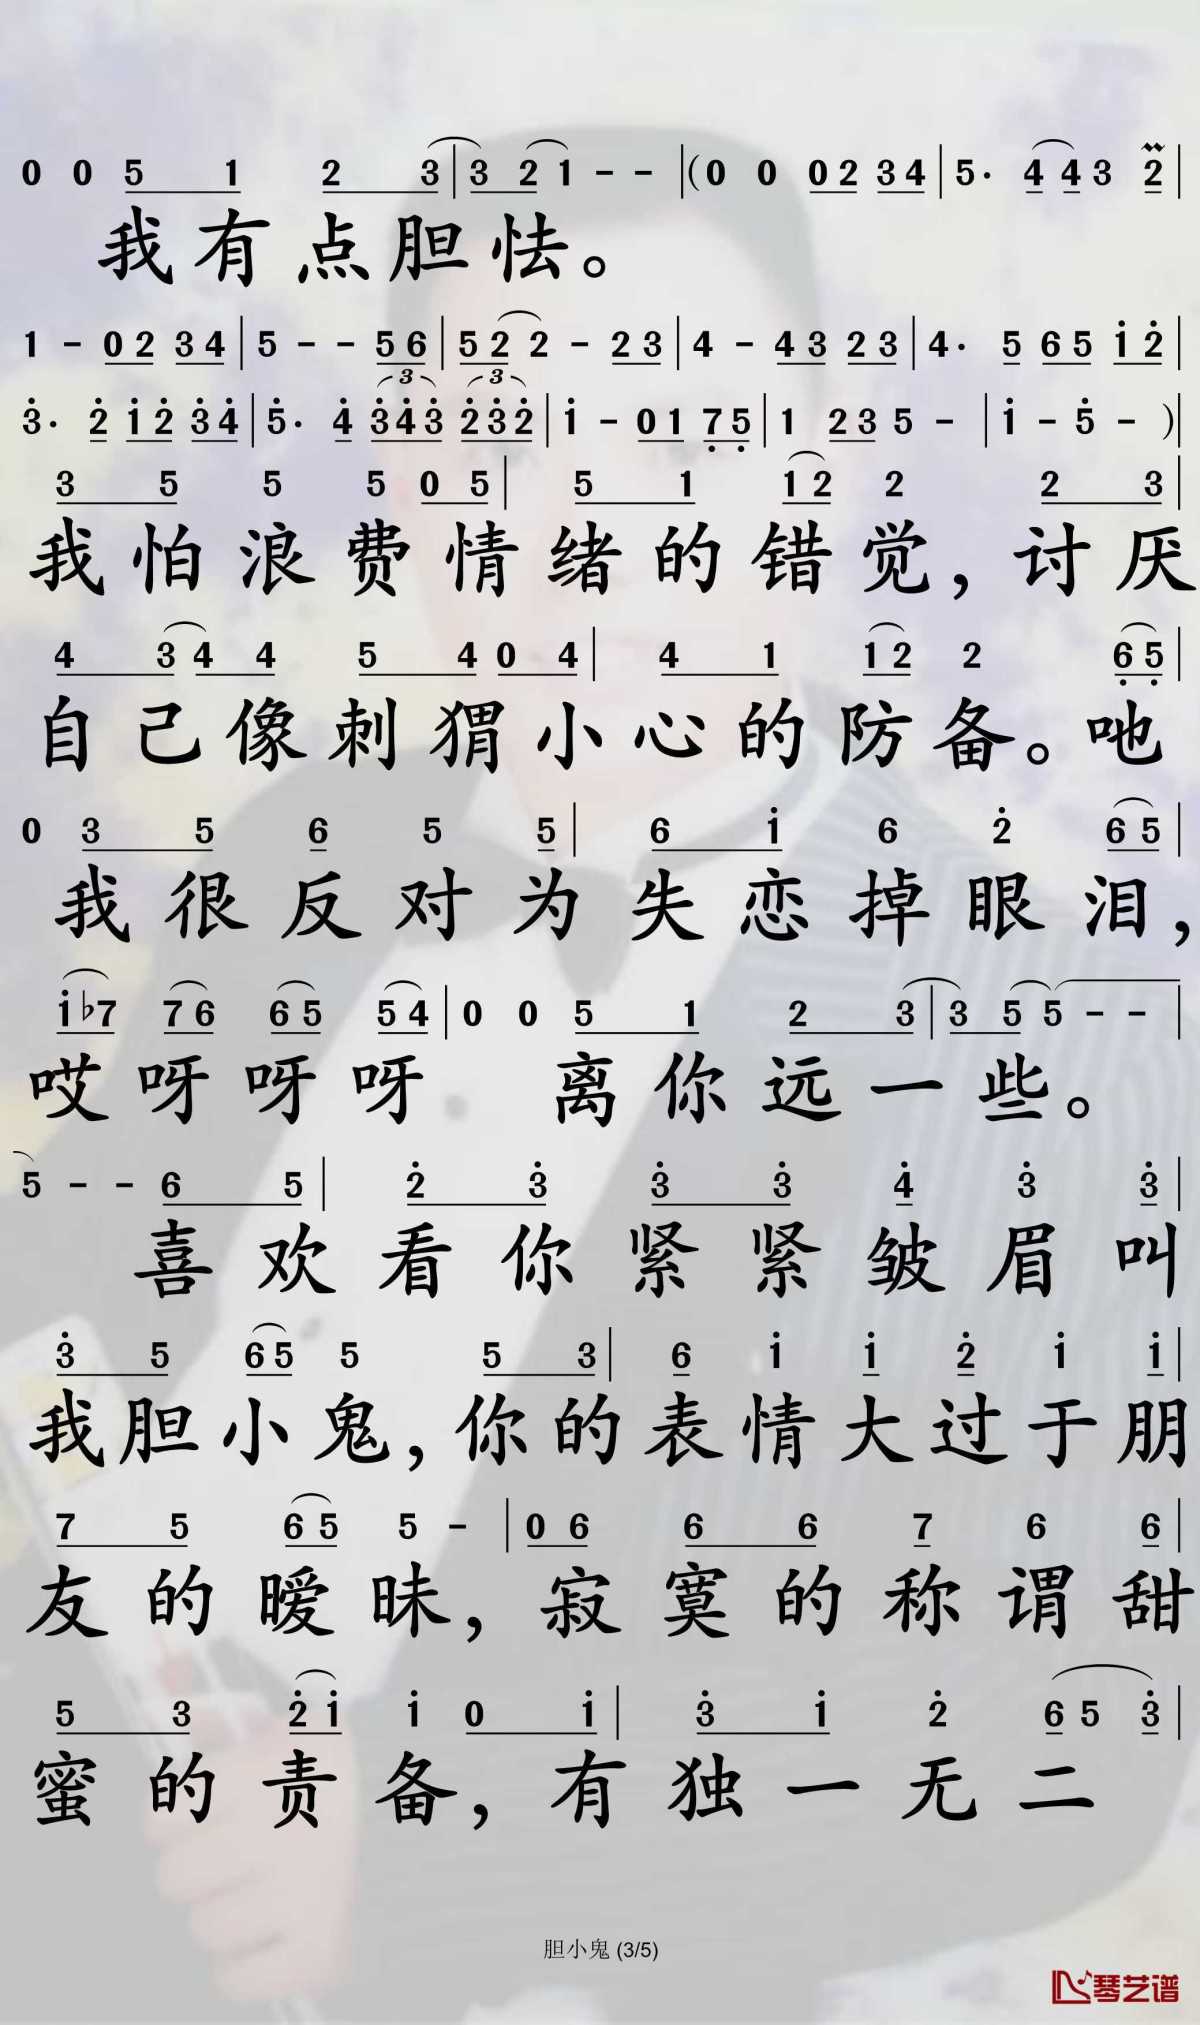 0 0 5 1 2 3 | 3 2 1 - - | (0 0 0 2 3 4 | 5· 4 4 3 2 |
我有点胆怯。
1 - 0 2 3 4 | 5 - - 5 6 | 5 2 2 - 2 3 | 4 - 4 3 2 3 | 4· 5 6 5 1 2 |
3· 2 1 2 3 4 | 5· 4 3 4 3 2 3 2 | 1 - 0 1 7 5 | 1 2 3 5 - | 1 - 5 - )|
3 5 5 5 0 5 | 5 1 1 2 2 2 3 |
我怕浪费情绪的错觉，讨厌
4 3 4 4 5 4 0 4 | 4 1 1 2 2 6 5 |
自己像刺猬小心的防备。吔
0 3 5 6 5 5 | 6 1 6 2 6 5 |
我很反对为失恋掉眼泪，
1 ♭7 7 6 6 5 5 4 | 0 0 5 1 2 3 | 3 5 5 - - |
哎呀呀呀 离你远一些。
5 - - 6 5 | 2 3 3 3 4 3 3 |
喜欢看你紧紧皱眉叫
3 5 6 5 5 5 3 | 6 1 1 2 1 1 |
我胆小鬼，你的表情大过于朋
7 5 6 5 5 - | 0 6 6 6 7 6 6 |
友的暧昧，寂寞的称谓甜
5 3 2 1 1 0 1 | 3 1 2 6 5 3 |
蜜的责备，有独一无二
胆小鬼 (3/5)
琴艺谱